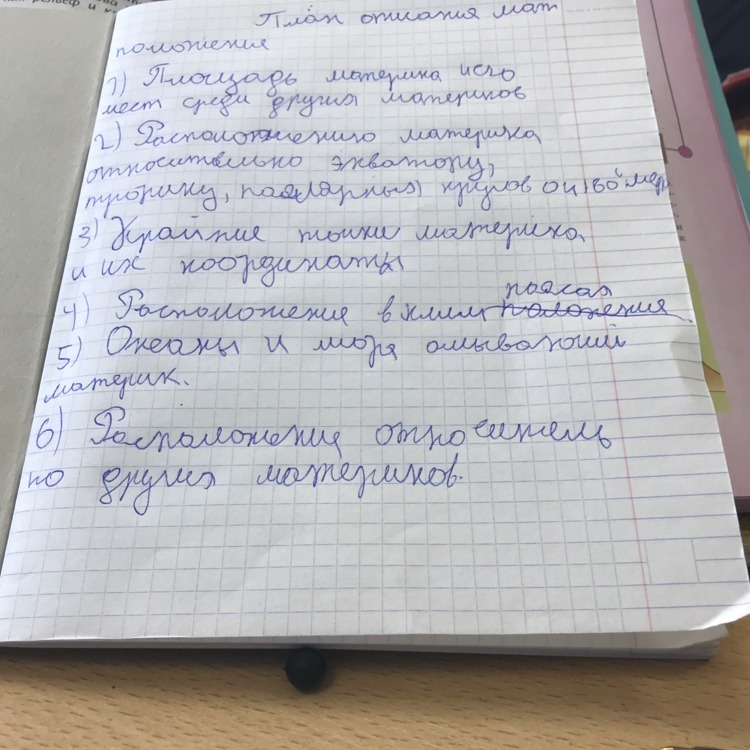 План описания мат
положения
1) Площадь материка и его
мест среди других материков
2) Расположению материка
относительно экватору,
тропику, полярных кругов 0 и 180° мер
3) Крайние точки материка
и их координаты
пояса
4) Расположения в клим положения
5) Океаны и моря омывающий
материк.
6) Расположение относитель
но других материков.